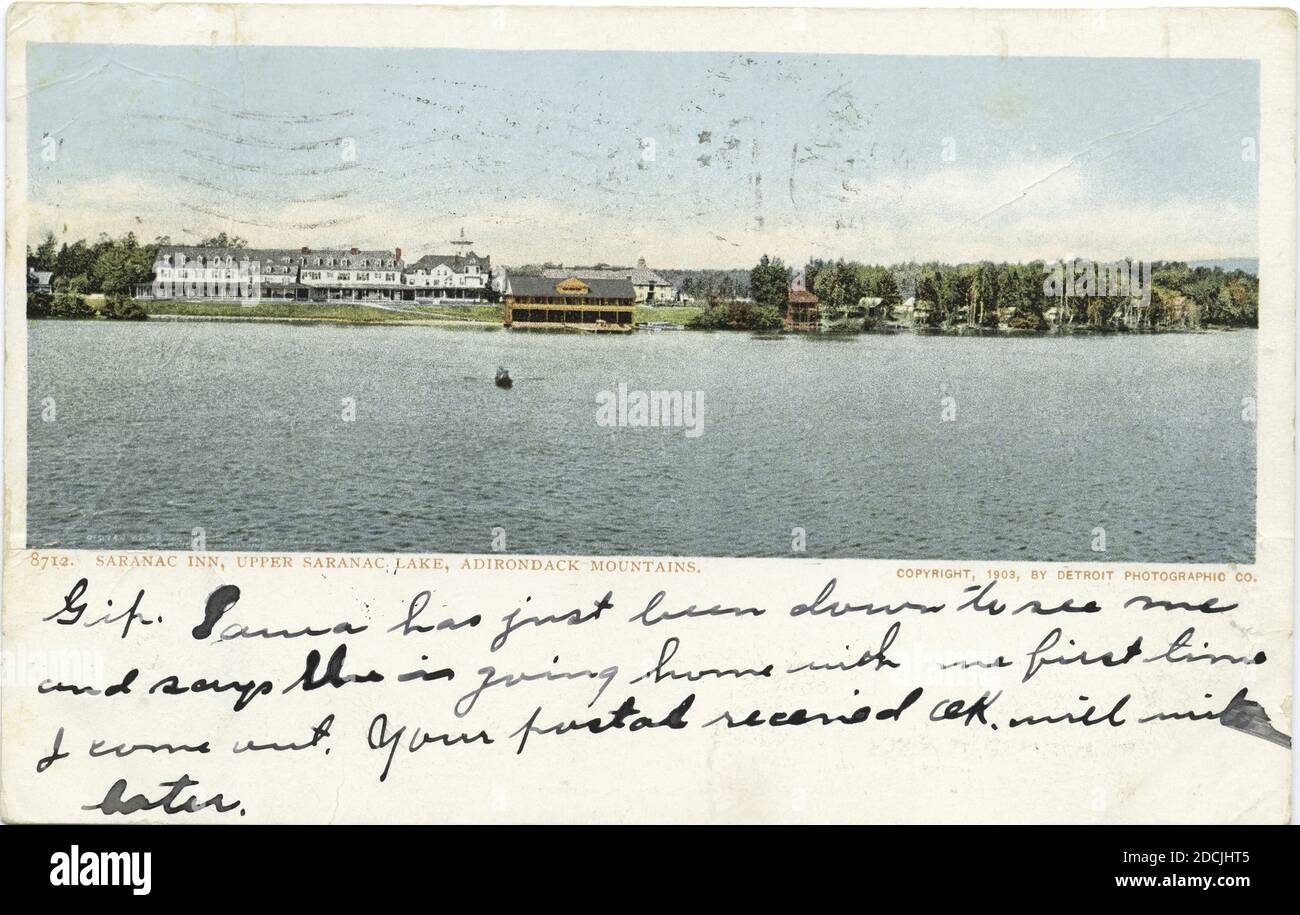 8712. SARANAC INN, UPPER SARANAC LAKE, ADIRONDACK MOUNTAINS.
COPYRIGHT, 1903, BY DETROIT PHOTOGRAPHIC CO.
has just been down to see me
and says she is going home with me first time
I come out. Your postal received OK. will write
later.
alamy
Image ID: 2DCJHT5
www.alamy.com